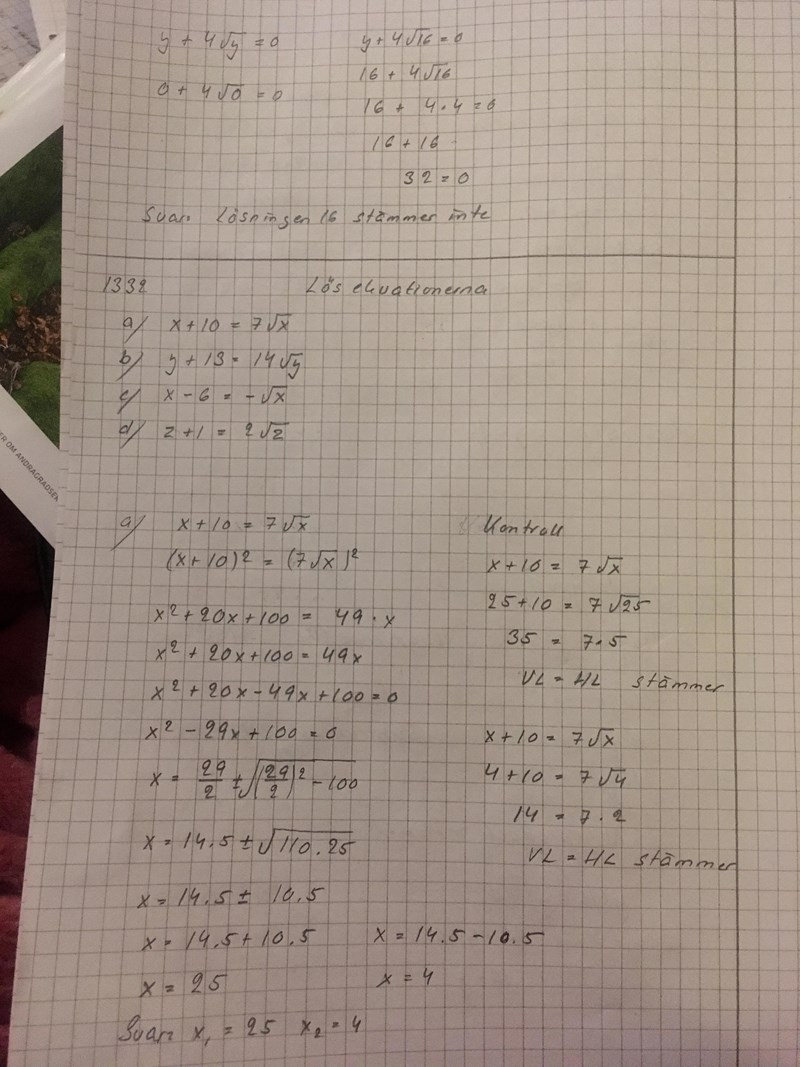 y + 4√y = 0
0 + 4√0 = 0
y + 4√16 = 0
16 + 4√16
16 + 4·4 = 0
16 + 16
32 = 0
Svar: Lösningen 16 stämmer inte
1332 Lös ekvationerna
a) x + 10 = 7√x
b) y + 13 = 14√y
c) x - 6 = -√x
d) z + 1 = 2√z
a) x + 10 = 7√x
(x + 10)² = (7√x)²
x² + 20x + 100 = 49 · x
x² + 20x + 100 = 49x
x² + 20x - 49x + 100 = 0
x² - 29x + 100 = 0
x = 29/2 ± √((29/2)² - 100)
x = 14.5 ± √110.25
x = 14.5 ± 10.5
x = 14.5 + 10.5 x = 14.5 - 10.5
x = 25 x = 4
Svar: x₁ = 25 x₂ = 4
Kontroll
x + 10 = 7√x
25 + 10 = 7√25
35 = 7·5
VL = HL stämmer
x + 10 = 7√x
4 + 10 = 7√4
14 = 7·2
VL = HL stämmer
OM ANDRAGRADSEK